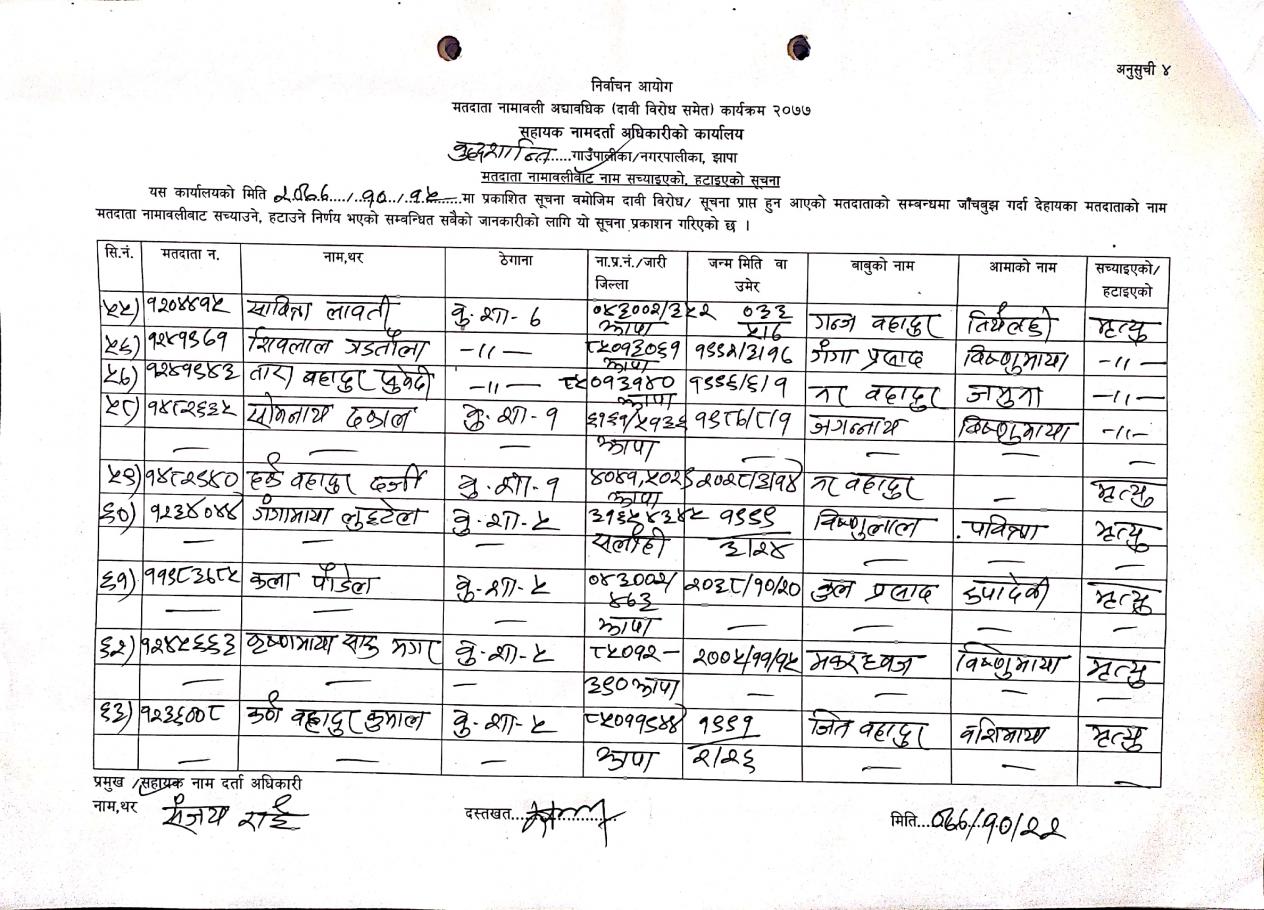 अनुसुची ४
निर्वाचन आयोग
मतदाता नामावली अद्यावधिक (दावी विरोध समेत) कार्यक्रम २०७७
सहायक नामदर्ता अधिकारीको कार्यालय
बुद्धशान्ति.....गाउँपालीका/नगरपालीका, झापा
मतदाता नामावलीबाट नाम सच्याइएको, हटाइएको सूचना
यस कार्यालयको मिति २०७७/१०/१५ मा प्रकाशित सूचना वमोजिम दावी विरोध/ सूचना प्राप्त हुन आएको मतदाताको सम्बन्धमा जाँचबुझ गर्दा देहायका मतदाताको नाम
मतदाता नामावलीबाट सच्याउने, हटाउने निर्णय भएको सम्वन्धित सबैको जानकारीको लागि यो सूचना प्रकाशन गरिएको छ ।
सि.नं. मतदाता न. नाम,थर ठेगाना ना.प्र.नं./जारी जिल्ला जन्म मिति वा उमेर बाबुको नाम आमाको नाम सच्याइएको/ हटाइएको
५५) १२०४४१५ सावित्रा लावती बु.शा-७ ०४३००२/३५२ ०३३
झापा ५१७ गन्ज वहादुर मृत्यु
५६) १२४१९७१ शिवलाल -॥- ८५०१३०६१ १९९२/३/१६ गंगा प्रसाद विष्णुमाया -॥-
झापा
५७) १२४१९४३ तारा बहादुर सुवेदी -॥- ८५०१३१४० १९९६/६/१ नर वहादुर जमुना -॥-
झापा
५८) १४८२६३५ सोमनाथ ढकाल बु.शा-१ ३१६१/५१३६ १९८७/८/१ जगन्नाथ विष्णुमाया -॥-
— — — झापा — — — —
५९) १४८२९४० हर्क वहादुर दर्जी बु.शा-१ ४०४१,५०२९ २०२८/३/१४ नर वहादुर — मृत्यु
झापा
६०) १२३४०४४ गंगामाया लुइटेल बु.शा-५ ३१६५४३४५ १९९९ विष्णुलाल पवित्रा मृत्यु
— — — सर्लाही ३/२४ — — —
६१) ११९८३७८५ कला पौडेल बु.शा-५ ०४३००२/ २०३८/१०/२० कुल प्रसाद रुपादेवी मृत्यु
— — ४६३
— झापा — — — —
६२) १२४५६६३ कृष्णमाया सारु मगर बु.शा-५ ८५०१२- २००५/११/१५ मकरध्वज विष्णुमाया मृत्यु
— — — ३९०झापा — — — —
६३) १२३६००८ कर्ण वहादुर कुमाल बु.शा-५ ८५०११९४४ १९९१ जित वहादुर वशिमाया मृत्यु
— — — झापा २/२६ — — —
प्रमुख /सहायक नाम दर्ता अधिकारी
नाम,थर संजय राई दस्तखत.................. मिति...०७७/१०/२२